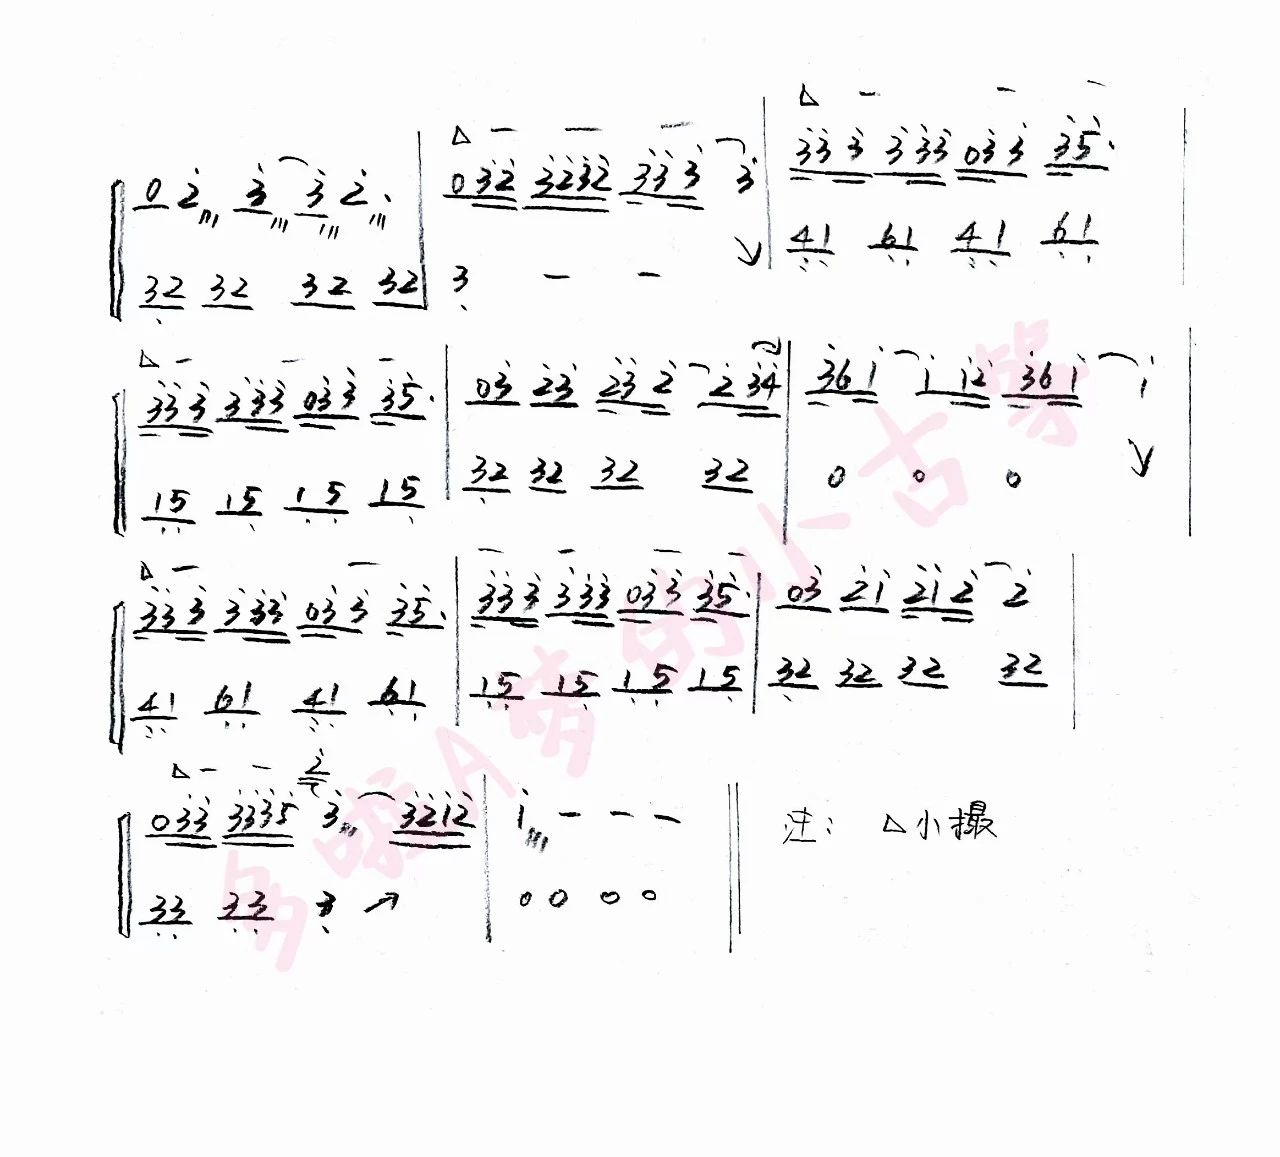 0 2 3 3 2 ·
32 32 32 32
△ — — —
032 3232 33 3 3
3 — —
△ — — —
33 3 333 033 35 ·
41 61 41 61
△ — — —
33 3 333 033 35 ·
15 15 15 15
03 23 23 2 2 34
32 32 32 32
361 1 12 361 1
0 0 0
△ — —
33 3 333 033 35 ·
41 61 41 61
— — — —
333 333 033 35 ·
15 15 15 15
03 21 212 2
32 32 32 32
△ — — 2
033 3335 3 3212
33 33 3
1 — — —
0 0 0 0
注: △小撮
多啦A梦的小古筝